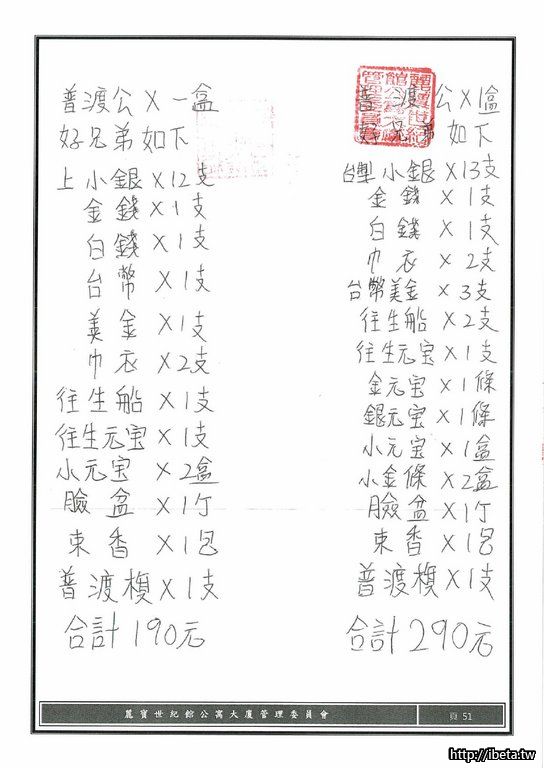 普渡公X一盒
好兄弟如下
上小銀X12支
金錢X1支
白錢X1支
台幣X1支
美金X1支
巾衣X2支
往生船X1支
往生元宝X1支
小元宝X2盒
臉盆X1个
束香X1包
普渡模X1支
合計190元
普渡公X1盒
好兄弟如下
台製小銀X13支
金錢X1支
白錢X1支
巾衣X2支
台幣美金X3支
往生船X2支
往生元宝X1支
金元宝X1條
銀元宝X1條
小元宝X1盒
小金條X2盒
臉盆X1个
束香X1包
普渡模X1支
合計290元
麗寶世紀館公寓大廈管理委員會
頁 51
http://ibeta.tw